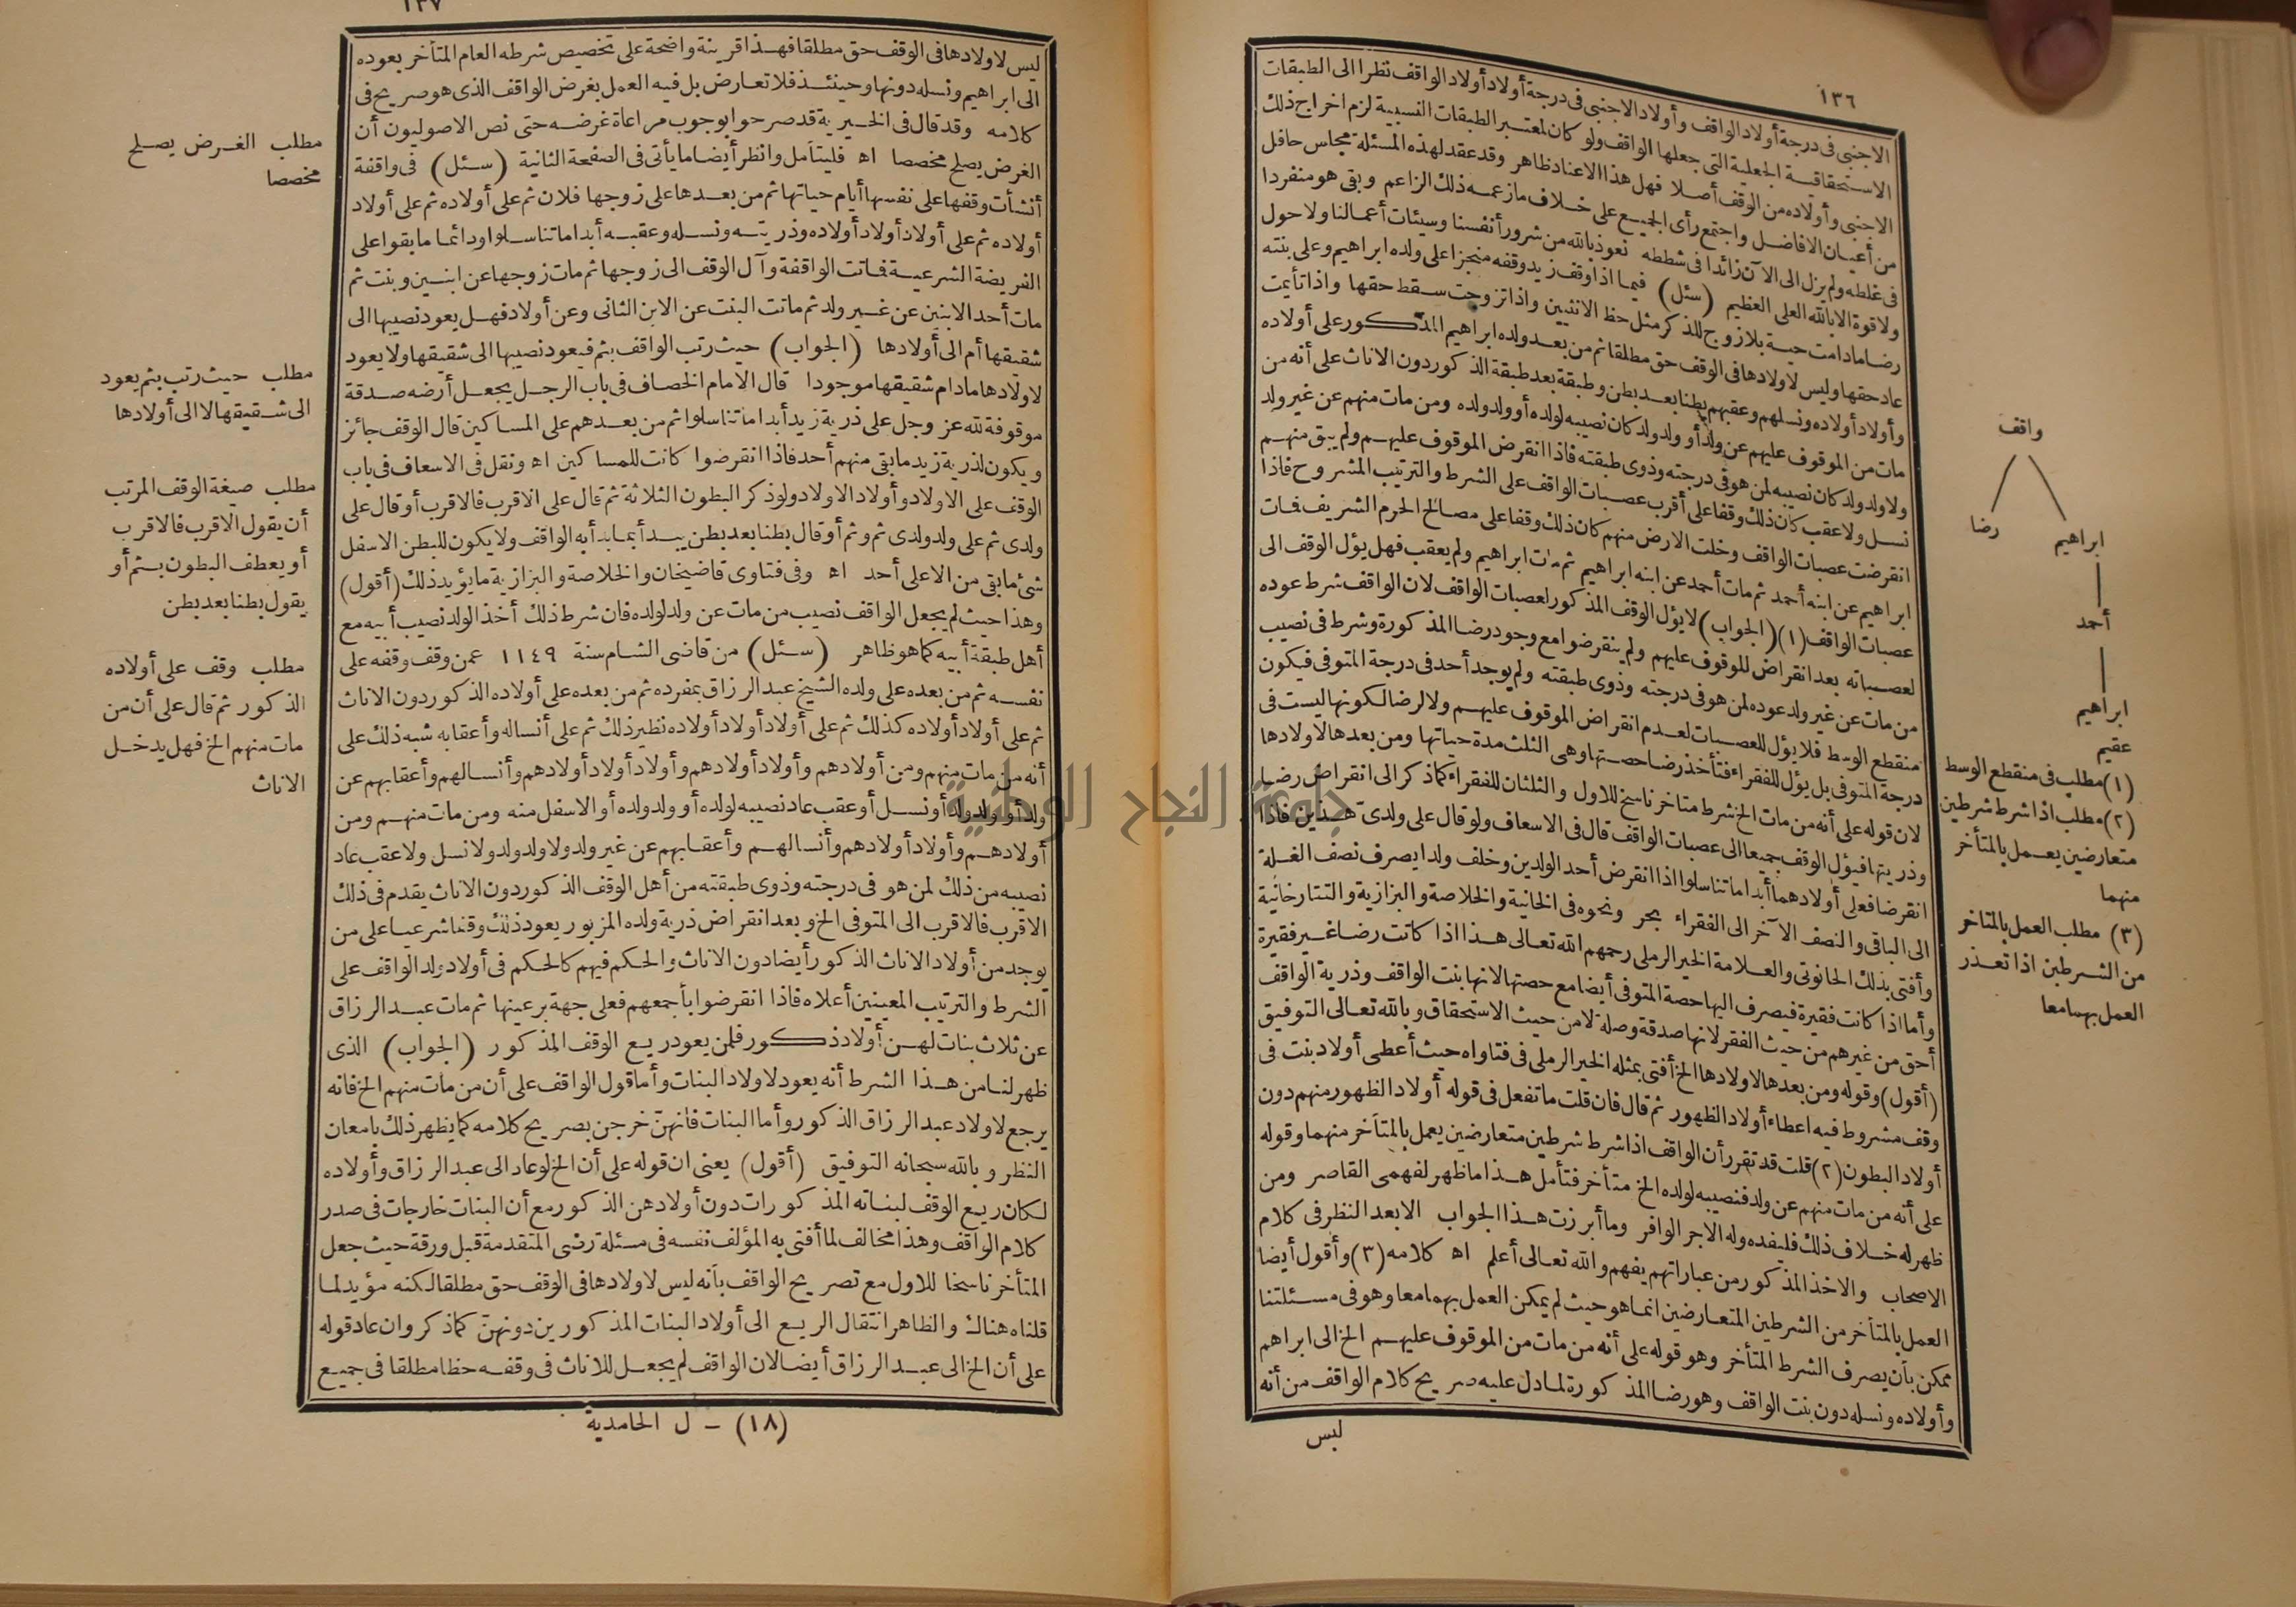 ١٣٦
الاجنبى فى درجة أولاد الواقف وأولاد الاجنبى فى درجة أولاد أولاد الواقف نظرا الى الطبقات
الاستحقاقية الجعلية التى جعلها الواقف ولو كان لمعتبر الطبقات النسبية لزم اخراج ذلك
الاجنبى وأولاده من الوقف أصلا فهل هذا الاعناد ظاهر وقد عقد لهذه المسئلة مجلس حافل
من أعيان الافاضل واجتمع رأى الجميع على خلاف مازعمه ذلك الزاعم وبقى هو منفردا
فى غلطه ولم يزل الى الآن زائدا فى شططه نعوذ بالله من شرور أنفسنا وسيئات أعمالنا ولا حول
ولا قوة الا بالله العلى العظيم (سئل) فيما اذا وقف زيد وقفه منجزا على ولده ابراهيم وعلى بنته
رضا مادامت حية بلا زوج للذكر مثل حظ الانثيين واذا تزوجت سقط حقها واذا تأيمت
عاد حقها وليس لاولادها فى الوقف حق مطلقا ثم من بعد ولده ابراهيم المذكور على أولاده
وأولاد أولاده ونسلهم وعقبهم بطنا بعد بطن وطبقة بعد طبقة الذكور دون الاناث على أنه من
مات من الموقوف عليهم عن ولد أو ولد ولد كان نصيبه لولده أو ولد ولده ومن مات منهم عن غير ولد
ولا ولد ولد كان نصيبه لمن هو فى درجته وذوى طبقته فاذا انقرض الموقوف عليهم ولم يبق منهم
نسل ولا عقب كان ذلك وقفا على أقرب عصبات الواقف على الشرط والترتيب المشروح فاذا
انقرضت عصبات الواقف وخلت الارض منهم كان ذلك وقفا على مصالح الحرم الشريف فات
ابراهيم عن ابنه أحمد ثم مات أحمد عن ابنه ابراهيم ثم مات ابراهيم ولم يعقب فهل يؤل الوقف الى
عصبات الواقف (١) (الجواب) لا يؤل الوقف المذكور لعصبات الواقف لان الواقف شرط عوده
لعصباته بعد انقراض للوقوف عليهم ولم ينقرضوا مع وجود رضا المذكورة وشرط فى نصيب
من مات عن غير ولد عوده لمن هو فى درجته وذوى طبقته ولم يوجد أحد فى درجة المتوفى فيكون
منقطع الوسط فلا يؤل للعصبات لعدم انقراض الموقوف عليهم ولا لرضا لكونها ليست فى
درجة المتوفى بل يؤل للفقراء فتأخذ رضا حصتها وهى الثلث مدة حياتها ومن بعدها لاولادها
لان قوله على أنه من مات الخ شرط متاخر ناسخ للاول والثلثان للفقراء كماذكر الى انقراض رضا
وذريتها فيؤل الوقف جميعا الى عصبات الواقف قال فى الاسعاف ولو قال على ولدىّ هذين فاذا
انقرضا فعلى أولادهما أبدا ما تناسلوا اذا انقرض أحد الولدين وخلف ولدا يصرف نصف الغلة
الى الباقى والنصف الآخر الى الفقراء بحر ونحوه فى الخانية والخلاصة والبزازية والتتارخانية
وأفتى بذلك الحانوتى والعلامة الخير الرملى رحمهم الله تعالى هذا اذا كانت رضا غير فقيرة
وأما اذا كانت فقيرة فيصرف اليها حصة المتوفى أيضا مع حصتها لانها بنت الواقف وذرية الواقف
أحق من غيرهم من حيث الفقر لانها صدقة وصلة لا من حيث الاستحقاق وبالله تعالى التوفيق
(أقول) وقوله ومن بعدها لاولادها الخ أفتى بمثله الخير الرملى فى فتاواه حيث أعطى أولاد بنت فى
وقف مشروط فيه اعطاء أولاد الظهور ثم قال فان قلت ما تفعل فى قوله أولاد الظهور منهم دون
أولاد البطون (٢) قلت قد تقرر أن الواقف اذا شرط شرطين متعارضين يعمل بالمتأخر منهما وقوله
على أنه من مات منهم عن ولد فنصيبه لولده الخ متأخر فتأمل هذا ما ظهر لفهمى القاصر ومن
ظهر له خلاف ذلك فليفده وله الاجر الوافر وما أبرزت هذا الجواب الا بعد النظر فى كلام
الاصحاب والاخذ المذكور من عباراتهم يفهم والله تعالى أعلم اه كلامه (٣) وأقول أيضا
العمل بالمتأخر من الشرطين المتعارضين انما هو حيث لم يمكن العمل بهما معا وهو فى مسئلتنا
ممكن بأن يصرف الشرط المتأخر وهو قوله على أنه من مات من الموقوف عليهم الخ الى ابراهم
وأولاده ونسله دون بنت الواقف وهو رضا المذكورة لما دل عليه صريح كلام الواقف من أنه
ليس
واقف
ابراهيم
رضا
أحمد
ابراهيم
عقيم
(١) مطلب فى منقطع الوسط
(٢) مطلب اذا شرط شرطين
متعارضين يعمل بالمتأخر
منهما
(٣) مطلب العمل بالمتاخر
من الشرطين اذا تعذر
العمل بهما معا
١٣٧
ليس لاولادها فى الوقف حق مطلقا فهذا قرينة واضحة على تخصيص شرطه العام المتأخر بعوده
الى ابراهيم ونسله دونها وحينئذ فلا تعارض بل فيه العمل بغرض الواقف الذى هو صريح فى
كلامه وقد قال فى الخيرية قد صرحوا بوجوب مراعاة غرضه حتى نص الاصوليون أن
الغرض يصلح مخصصا اه فليتأمل وانظر أيضا ما يأتى فى الصفحة الثانية (سئل) فى واقفة
أنشأت وقفها على نفسها أيام حياتها ثم من بعدها على زوجها فلان ثم على أولاده ثم على أولاد
أولاده ثم على أولاد أولاد أولاده وذريته ونسله وعقبه أبدا ما تناسلوا ودائما ما بقوا على
الفريضة الشرعية فماتت الواقفة وآل الوقف الى زوجها ثم مات زوجها عن ابنين وبنت ثم
مات أحد الابنين عن غير ولد ثم ماتت البنت عن الابن الثانى وعن أولاد فهل يعود نصيبها الى
شقيقها أم الى أولادها (الجواب) حيث رتب الواقف بثم فيعود نصيبها الى شقيقها ولا يعود
لاولادها مادام شقيقها موجودا قال الامام الخصاف فى باب الرجل يجعل أرضه صدقة
موقوفة لله عز وجل على ذرية زيد أبدا ما تناسلوا ثم من بعدهم على المساكين قال الوقف جائز
ويكون لذرية زيد ما بقى منهم أحد فاذا انقرضوا كانت للمساكين اه ونقل فى الاسعاف فى باب
الوقف على الاولاد وأولاد الاولاد ولو ذكر البطون الثلاثة ثم قال على الاقرب فالاقرب أو قال على
ولدى ثم على ولد ولدى ثم وثم أو قال بطنا بعد بطن يبدأ بما بدأ به الواقف ولا يكون للبطن الاسفل
شئ ما بقى من الاعلى أحد اه وفى فتاوى قاضيخان والخلاصة والبزازية ما يؤيد ذلك (أقول)
وهذا حيث لم يجعل الواقف نصيب من مات عن ولد لولده فان شرط ذلك أخذ الولد نصيب أبيه مع
أهل طبقة أبيه كما هو ظاهر (سئل) من قاضى الشام سنة ١١٤٩ عمن وقف وقفه على
نفسه ثم من بعده على ولده الشيخ عبد الرزاق بمفرده ثم من بعده على أولاده الذكور دون الاناث
ثم على أولاد أولاده كذلك ثم على أولاد أولاد أولاده نظير ذلك ثم على أنساله وأعقابه شبه ذلك على
أنه من مات منهم ومن أولادهم وأولاد أولادهم وأولاد أولاد أولادهم وأنسالهم وأعقابهم عن
ولد أو ولد ولد أو نسل أو عقب عاد نصيبه لولده أو ولد ولده أو الاسفل منه ومن مات منهم ومن
أولادهم وأولاد أولادهم وأنسالهم وأعقابهم عن غير ولد ولا ولد ولد ولا نسل ولا عقب عاد
نصيبه من ذلك لمن هو فى درجته وذوى طبقته من أهل الوقف الذكور دون الاناث يقدم فى ذلك
الاقرب فالاقرب الى المتوفى الخ وبعد انقراض ذرية ولده المزبور يعود ذلك وقفا شرعيا على من
يوجد من أولاد الاناث الذكور أيضا دون الاناث والحكم فيهم كالحكم فى أولاد ولد الواقف على
الشرط والترتيب المعينين أعلاه فاذا انقرضوا بأجمعهم فعلى جهة بر عينها ثم مات عبد الرزاق
عن ثلاث بنات لهن أولاد ذكور فلمن يعود ريع الوقف المذكور (الجواب) الذى
ظهر لنا من هذا الشرط أنه يعود لاولاد البنات وأما قول الواقف على أن من مات منهم الخ فانه
يرجع لاولاد عبد الرزاق الذكور وأما البنات فانهنّ خرجن بصريح كلامه كما يظهر ذلك بامعان
النظر وبالله سبحانه التوفيق (أقول) يعنى ان قوله على أن الخ لو عاد الى عبد الرزاق وأولاده
لكان ريع الوقف لبناته المذكورات دون أولادهن الذكور مع أن البنات خارجات فى صدر
كلام الواقف وهذا مخالف لما أفتى به المؤلف نفسه فى مسئلة رضى المتقدمة قبل ورقة حيث جعل
المتأخر ناسخا للاول مع تصريح الواقف بأنه ليس لاولادها فى الوقف حق مطلقا لكنه مؤيد لما
قلناه هناك والظاهر انتقال الريع الى أولاد البنات المذكورين دونهنّ كماذكر وان عاد قوله
على أن الخ الى عبد الرزاق أيضا لان الواقف لم يجعل للاناث فى وقفه حظا مطلقا فى جميع
(١٨) – ل الحامدية
مطلب الغرض يصلح
مخصصا
مطلب حيث رتب بثم يعود
الى شقيقها لا الى أولادها
مطلب صيغة الوقف المرتب
أن يقول الاقرب فالاقرب
أو يعطف البطون بثم أو
يقول بطنا بعد بطن
مطلب وقف على أولاده
الذكور ثم قال على أن من
مات منهم الخ فهل يدخل
الاناث
جامعة النجاح الوطنية